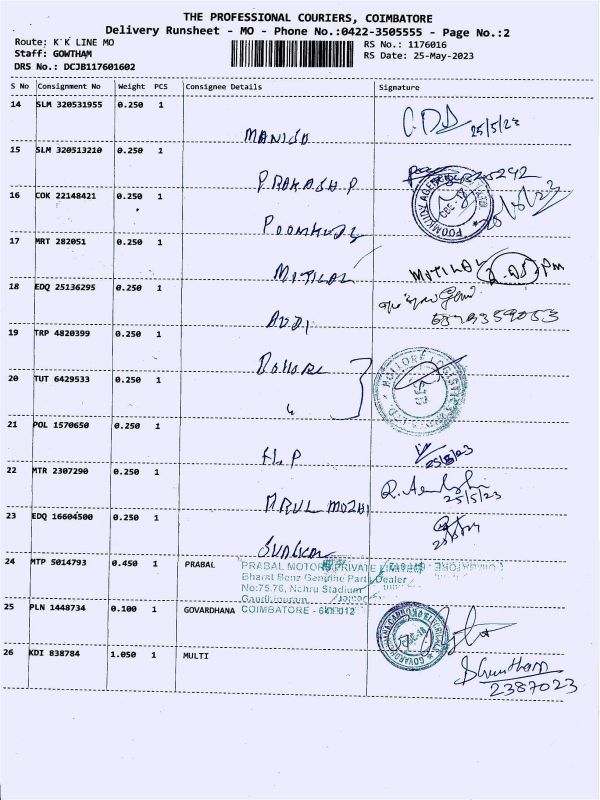 THE PROFESSIONAL COURIERS, COIMBATORE
Delivery Runsheet - MO - Phone No.:0422-3505555 - Page No.:2
Route: K K LINE MO
RS No.: 1176016
Staff: GOWTHAM
RS Date: 25-May-2023
DRS No.: DCJB117601602
S No Consignment No Weight PCS Consignee Details Signature
14 SLM 320531955 0.250 1
25/5/23
15 SLM 320513210 0.250 1
PRAKASH P
16 COK 22148421 0.250 1
17 MRT 282051 0.250 1
MOTILAL
MOTILAL 2.05 PM
18 EDQ 25136295 0.250 1
AUDI
19 TRP 4820399 0.250 1
20 TUT 6429533 0.250 1
21 POL 1570650 0.250 1
22 MTR 2307290 0.250 1
ARUL MOZHI
25/5/23
23 EDQ 16604500 0.250 1
24 MTP 5014793 0.450 1 PRABAL
PRABAL MOTORS PRIVATE LIMITED
Bharat Benz Genuine Parts Dealer
No:75,76, Nehru Stadium
25 PLN 1448734 0.100 1 GOVARDHANA
COIMBATORE - 641 012
26 KDI 838784 1.050 1 MULTI
2387023